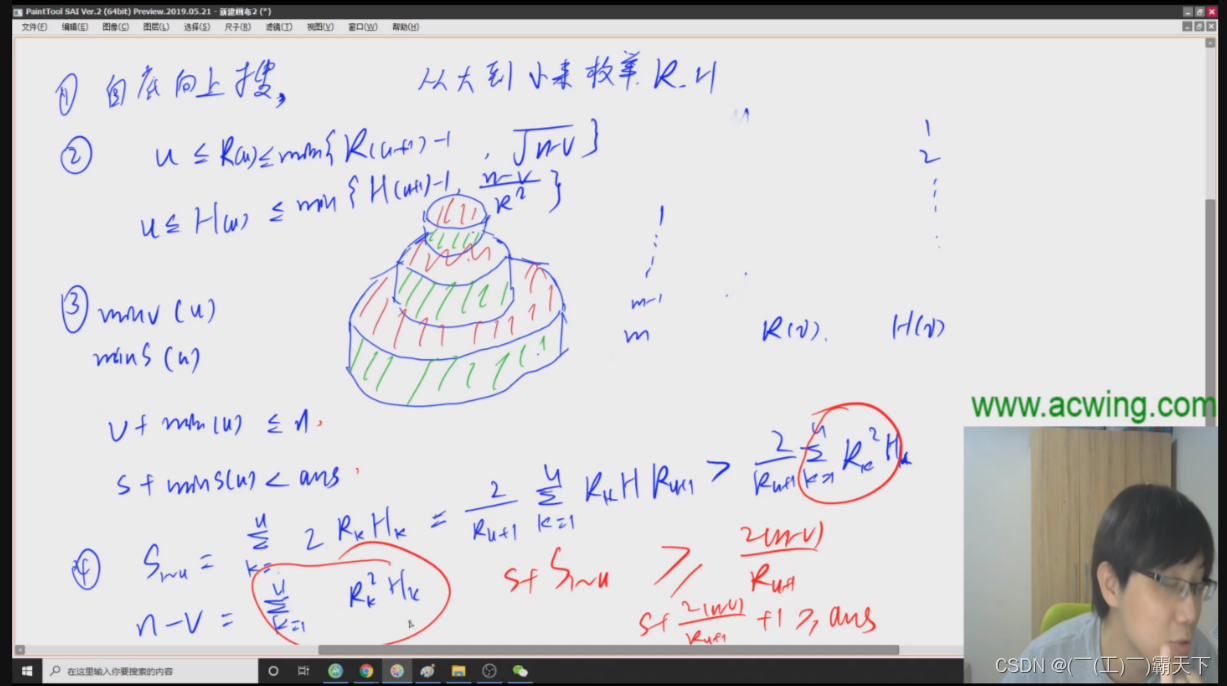 PaintTool SAI Ver.2 (64bit) Preview.2019.05.21 - 新建画布2 (*)
文件(F) 编辑(E) 图像(C) 图层(L) 选择(S) 尺子(R) 滤镜(T) 视图(V) 窗口(W) 帮助(H)
① 自底向上搜, 从大到小来枚举 R.H
② u ≤ R(u) ≤ min{R(u+1)-1, √n-v}
u ≤ H(u) ≤ min{H(u+1)-1, n-v/R²}
1
2
1
m-1
m R(v). H(v)
③ minv(u)
mins(u)
v + min(u) ≤ n.
s + mins(u) < ans
④ S₁~u = Σ_{k=1}^{u} 2 R_k H_k = 2/R_{u+1} Σ_{k=1}^{u} R_k H R_{u+1} > 2/R_{u+1} Σ_{k=1}^{u} R_k² H_k
n-v = Σ_{k=1}^{u} R_k² H_k
s+S₁~u ≥ 2(n-v)/R_{u+1}
s+ 2(n-v)/R_{u+1} +1 ≥ ans
www.acwing.com
在这里输入你要搜索的内容
CSDN @(￣(工)￣)霸天下